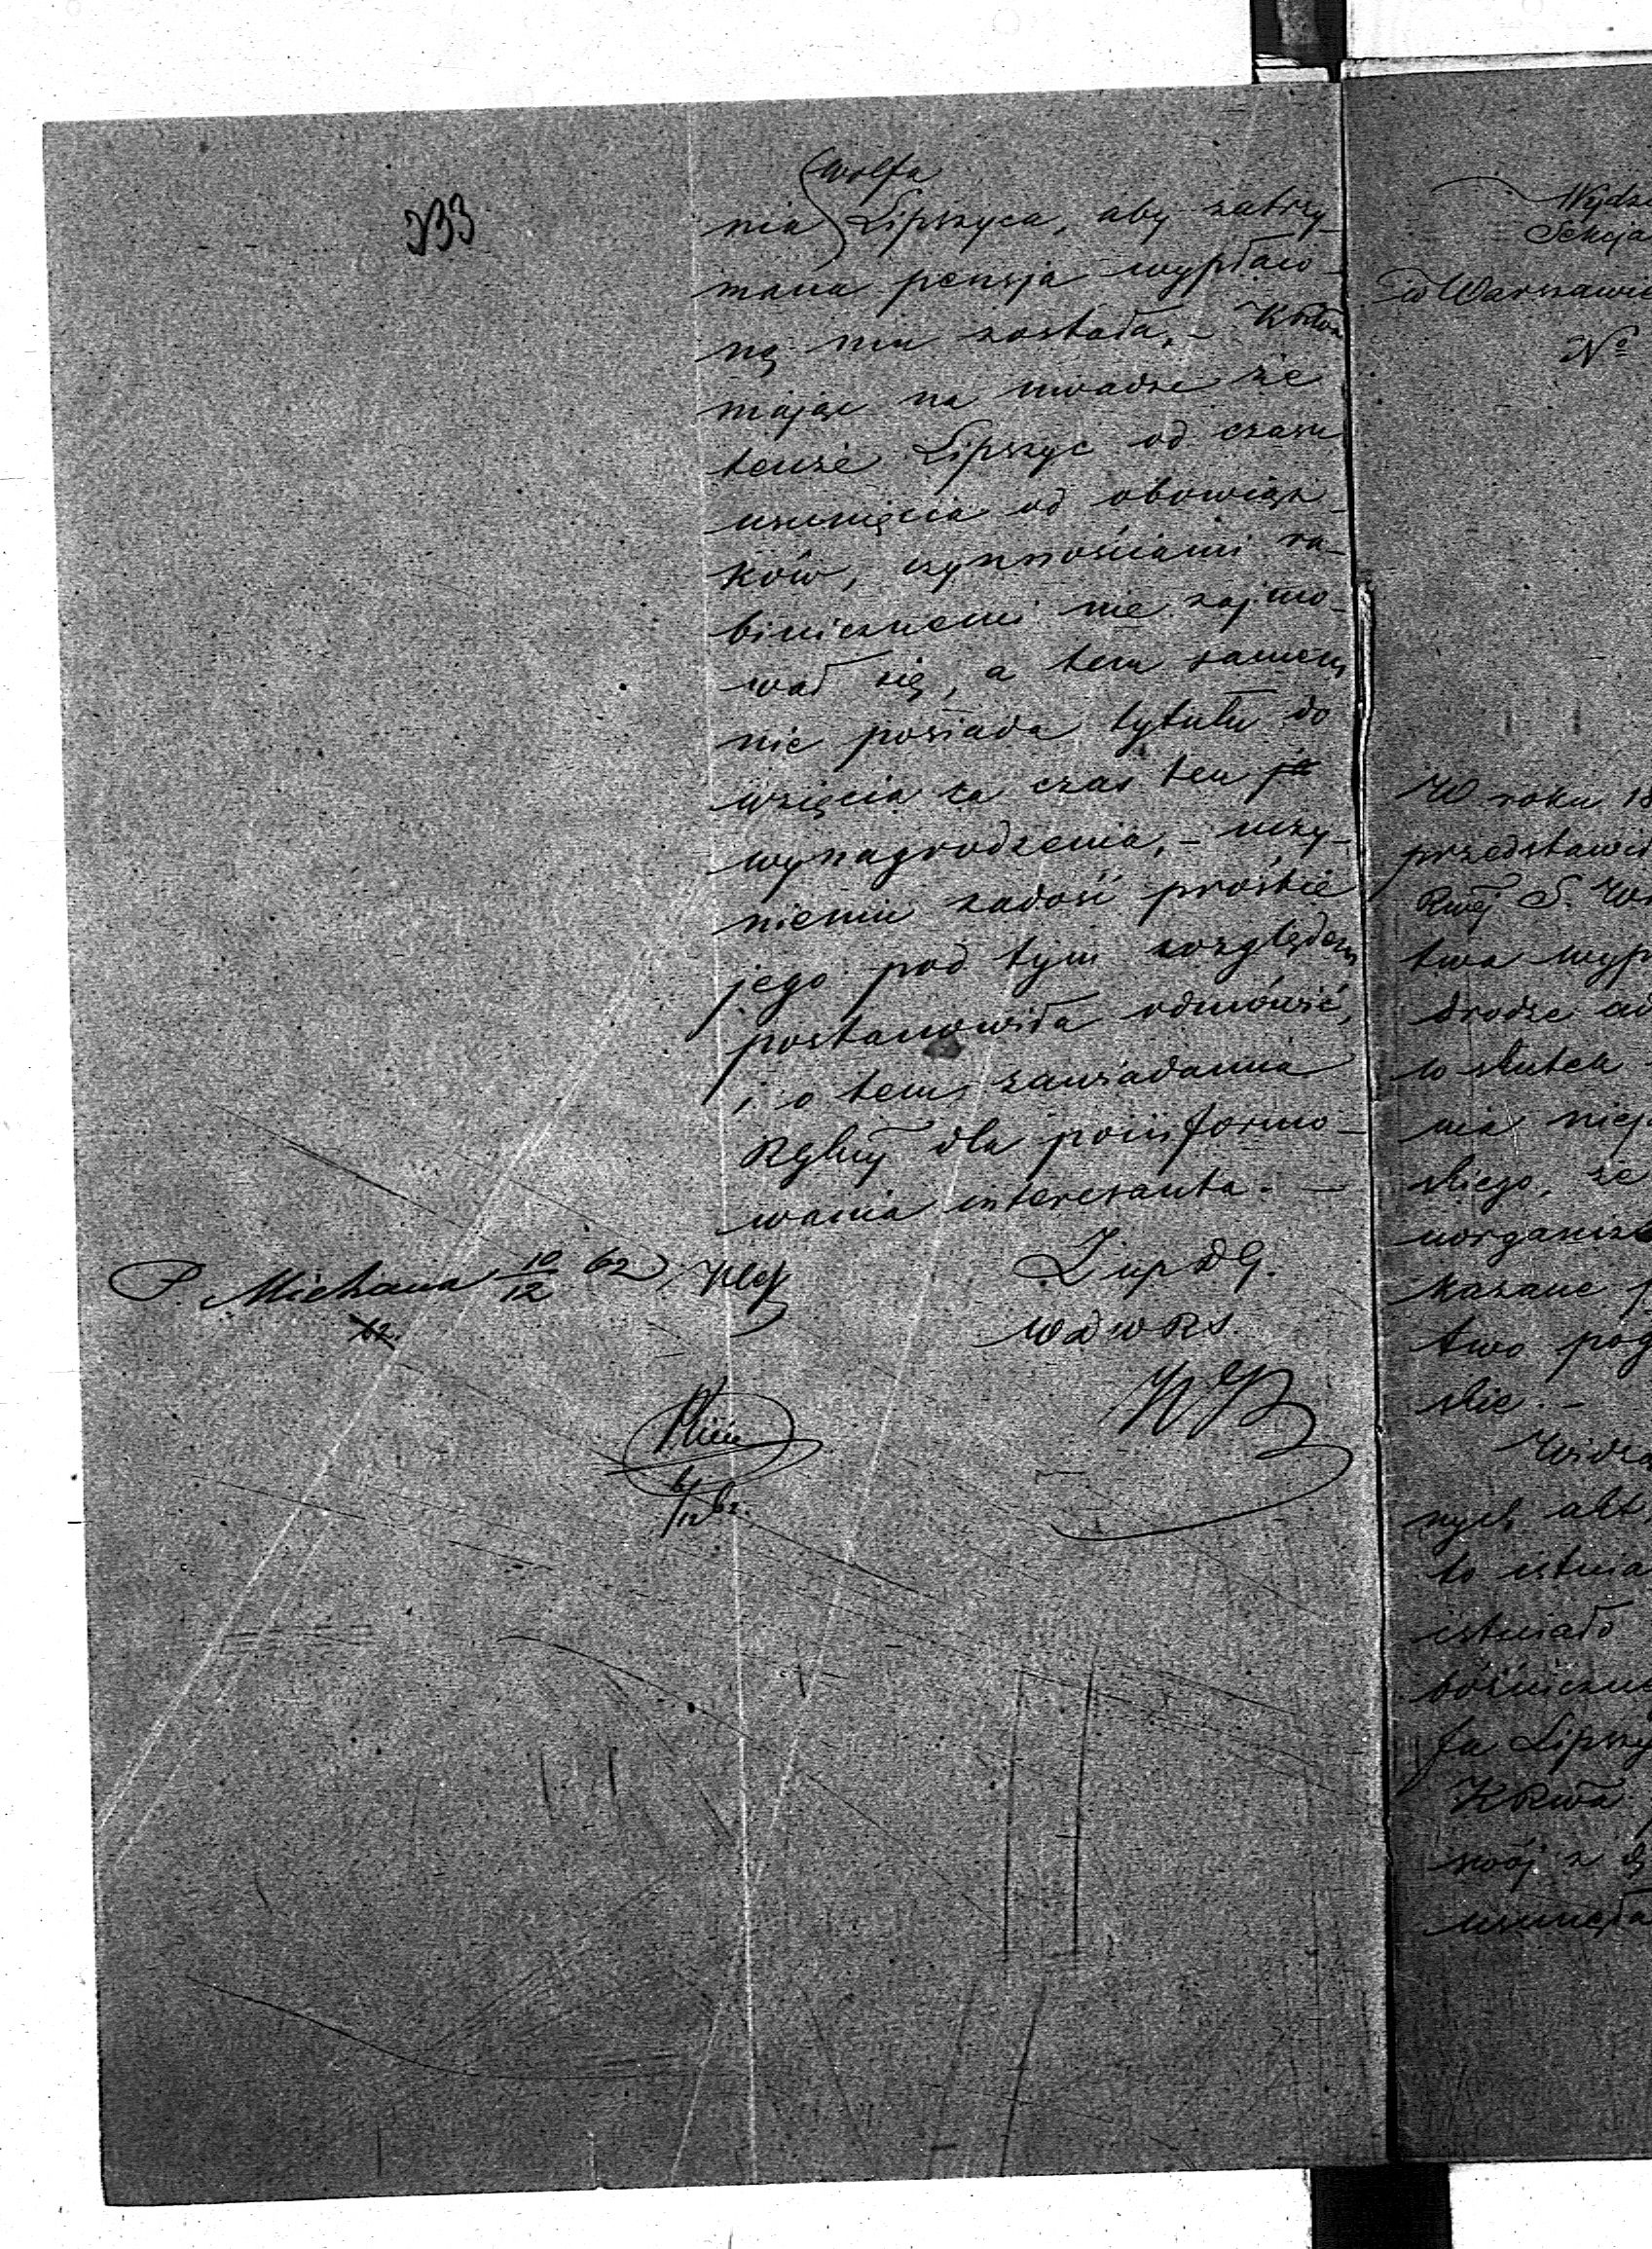 333
Wolfa
nia Lipszyca, aby zatrzy-
mana pensja wypłaco-
ną mu została, –
mając na uwadze że
tenże Lipszyc od czasu
usunięcia od obowiąz-
ków, czynnościami ra-
binicznemi nie zajmo-
wał się, a tem samem
nie posiada tytułu do
wzięcia za czas ten
wynagrodzenia, – uczy-
nieniu zadość prośbie
jego pod tym względem
postanowiła odmówić,
i o tem zawiadamia
dla poinformo-
wania interesanta. –
P. Michaux 10/12 62
62
Z up D G.
W D W R S
6/12 62.
Wydz
Sekcja
w Warszawie
Nº
W roku 18
przedstawi
twa wyp
drodze
w skutek
nia niej
skiego, że
uorganiz
kazane p
two pog
skie. –
Widzą
nych akt
to istnia
istniało
bóżniczn
fa Lipszy
KRwa
swój z d
usunęła